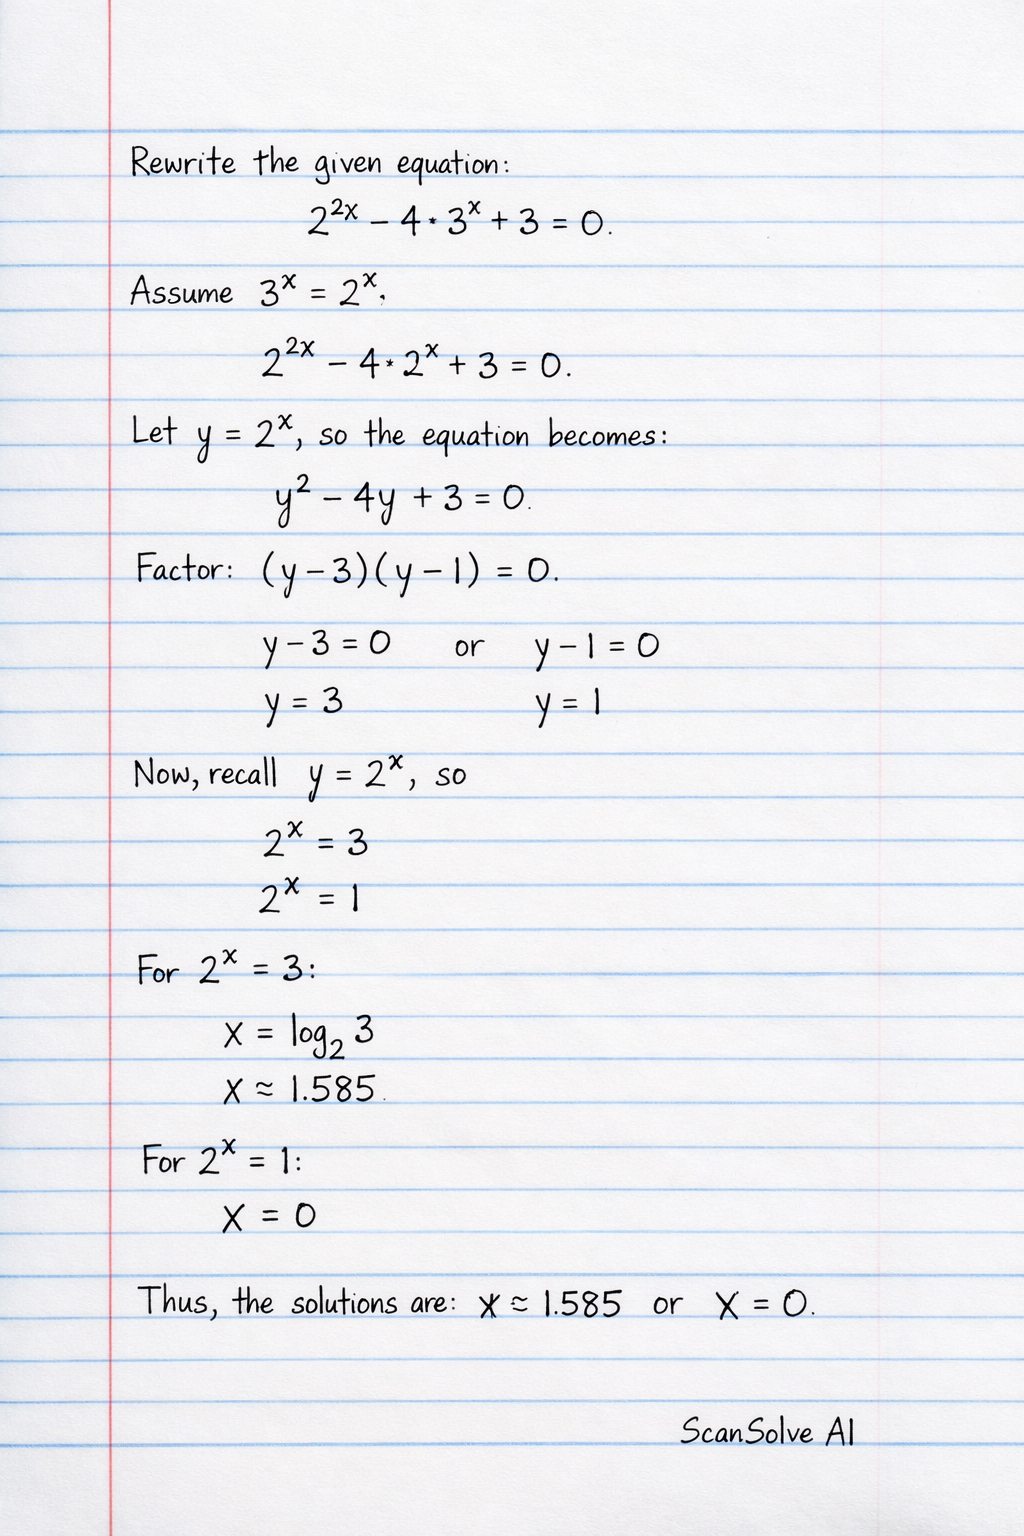 Rewrite the given equation:
2^{2x} - 4 · 3^x + 3 = 0.
Assume 3^x = 2^x,
2^{2x} - 4 · 2^x + 3 = 0.
Let y = 2^x, so the equation becomes:
y^2 - 4y + 3 = 0.
Factor: (y-3)(y-1) = 0.
y-3 = 0 or y-1 = 0
y = 3 y = 1
Now, recall y = 2^x, so
2^x = 3
2^x = 1
For 2^x = 3:
x = log_2 3
x ≈ 1.585.
For 2^x = 1:
x = 0
Thus, the solutions are: x ≈ 1.585 or x = 0.
ScanSolve AI